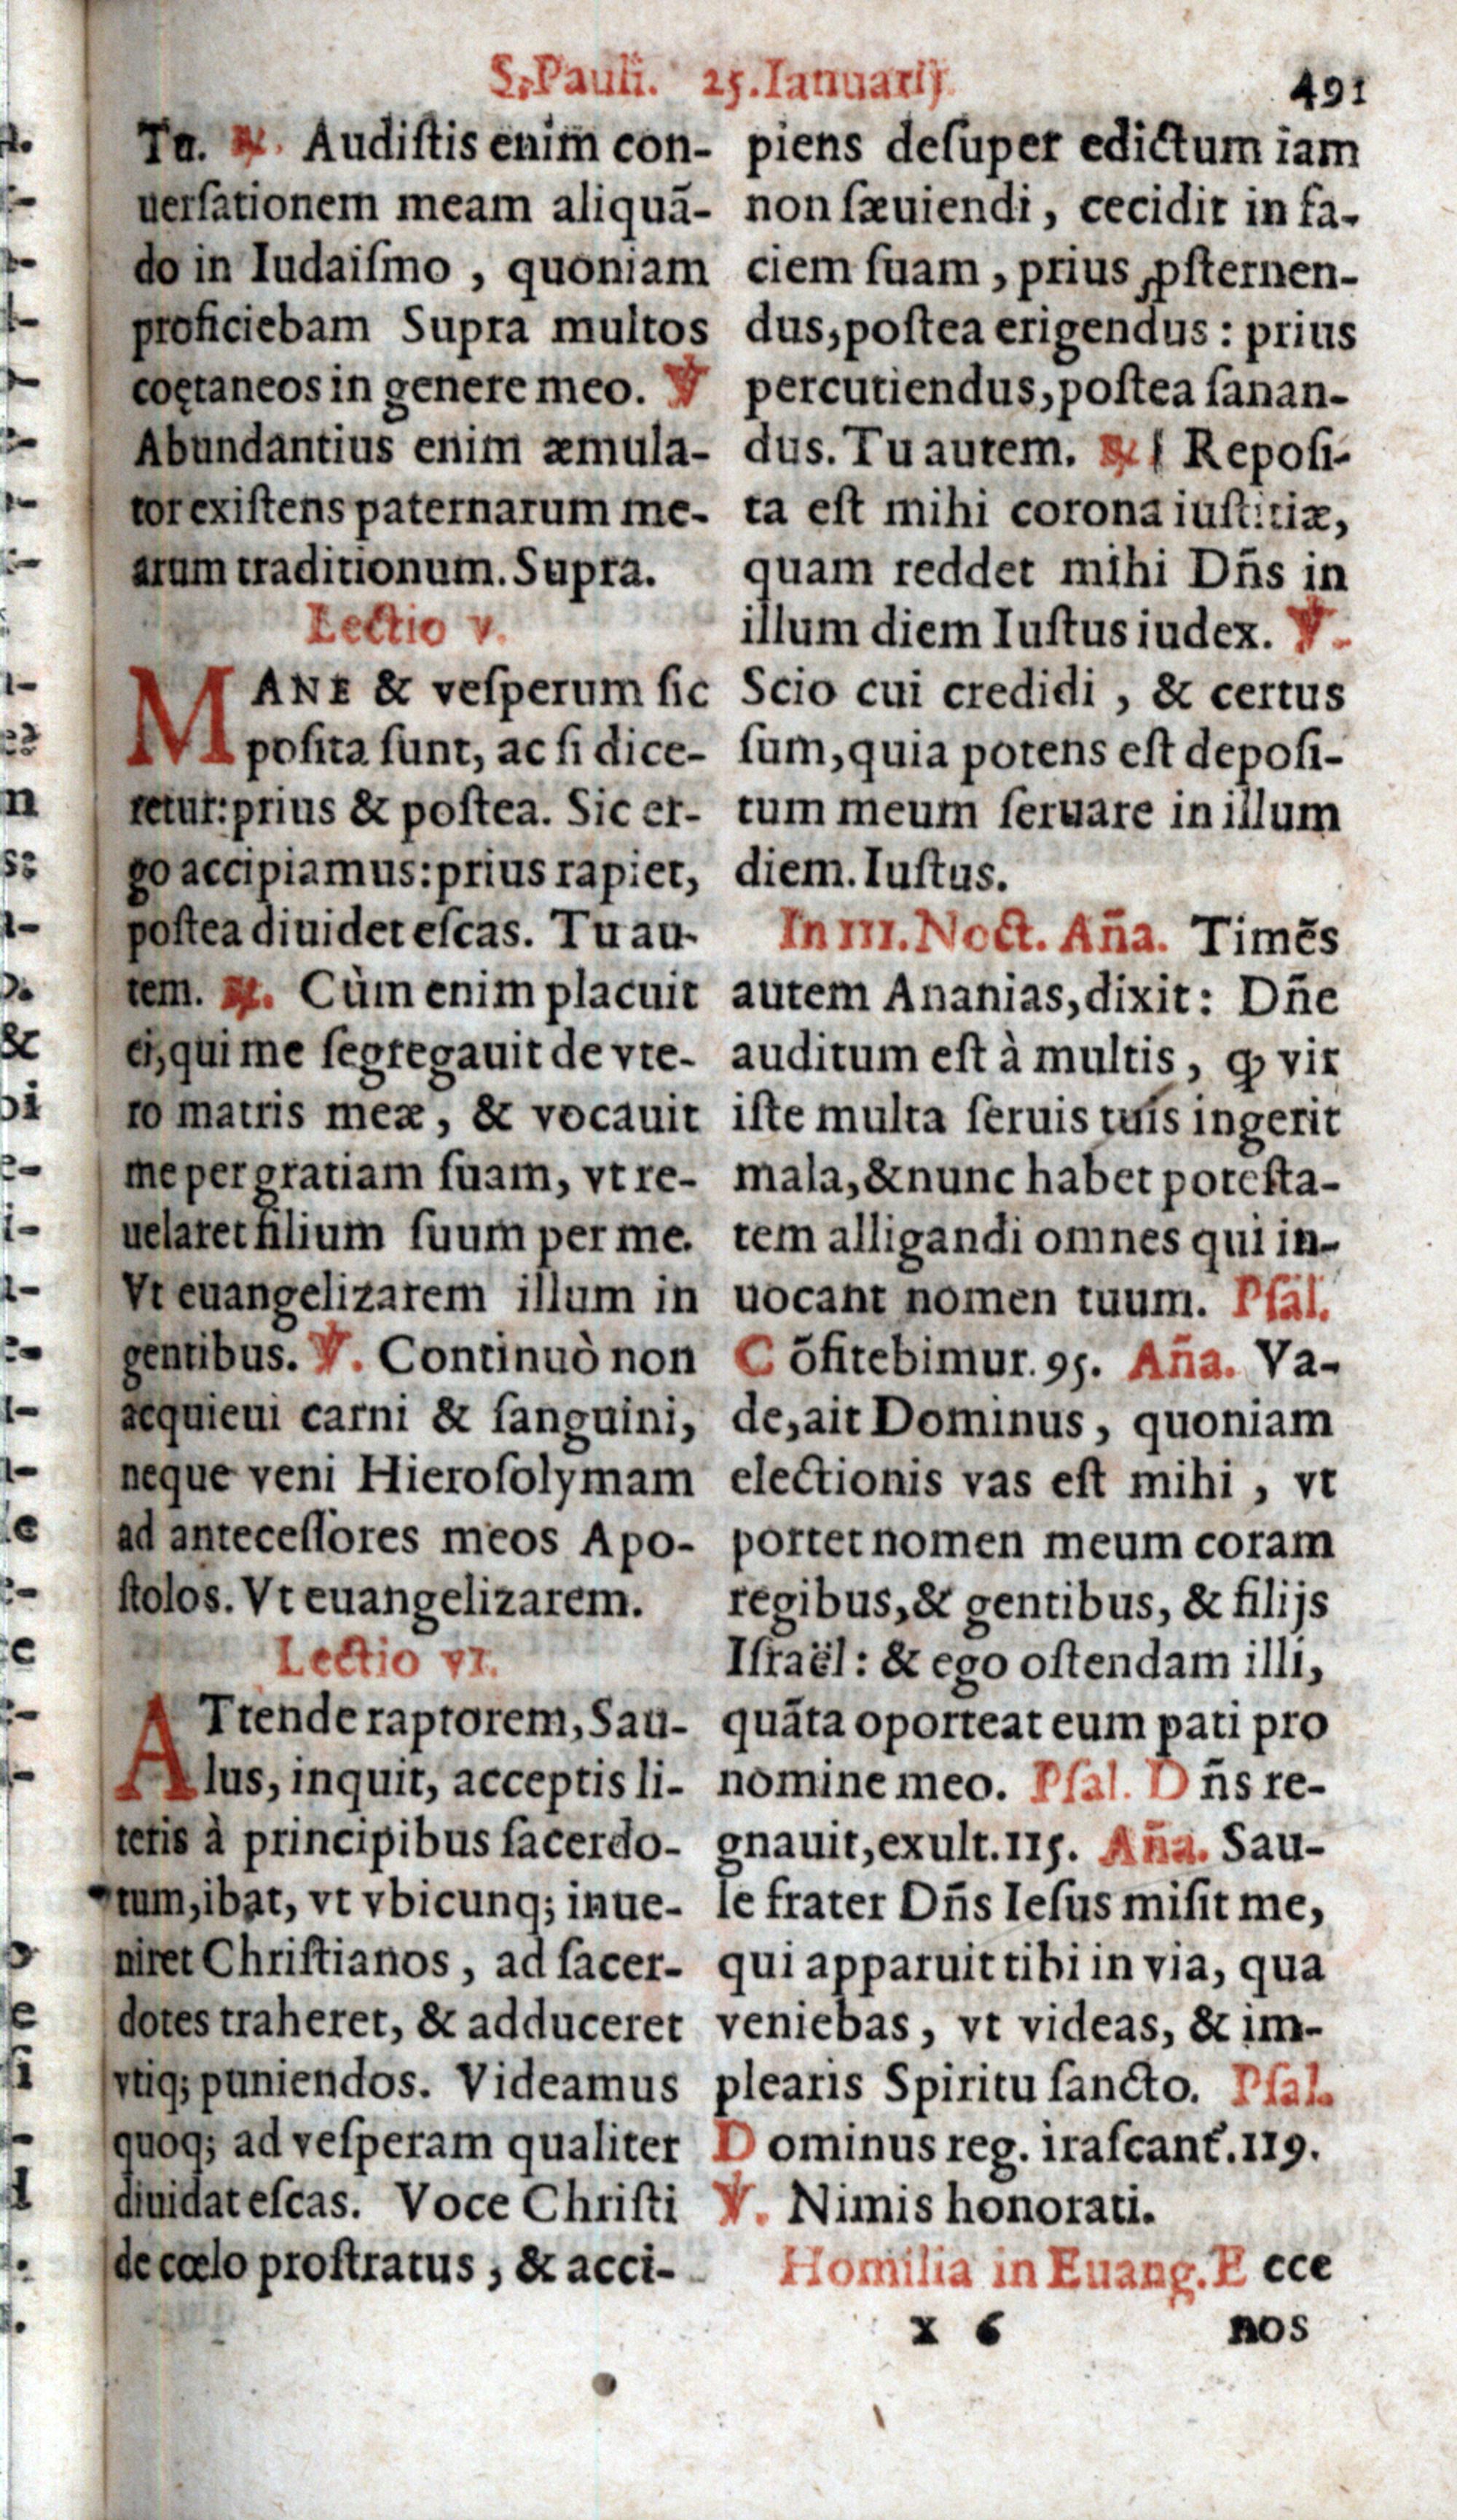 S. Pauli. 25. Ianuarij. 491
Tu. ℟. Audiſtis enim con-
uerſationem meam aliquā-
do in Iudaiſmo , quoniam
proficiebam Supra multos
coętaneos in genere meo. ℣
Abundantius enim æmula-
tor exiſtens paternarum me-
arum traditionum. Supra.
Lectio v.
MANE & veſperum ſic
poſita ſunt, ac ſi dice-
retur: prius & poſtea. Sic er-
go accipiamus: prius rapiet,
poſtea diuidet eſcas. Tu au-
tem. ℟. Cùm enim placuit
ei, qui me ſegregauit de vte-
ro matris meæ , & vocauit
me per gratiam ſuam, vt re-
uelaret filium ſuum per me.
Vt euangelizarem illum in
gentibus. ℣. Continuò non
acquieui carni & ſanguini,
neque veni Hieroſolymam
ad anteceſſores meos Apo-
ſtolos. Vt euangelizarem.
Lectio vi.
ATtende raptorem, Sau-
lus, inquit, acceptis li-
teris à principibus ſacerdo-
tum, ibat, vt vbicunq; inue-
niret Chriſtianos , ad ſacer-
dotes traheret, & adduceret
vtiq; puniendos. Videamus
quoq; ad veſperam qualiter
diuidat eſcas. Voce Chriſti
de cœlo proſtratus , & acci-
piens deſuper edictum iam
non ſæuiendi , cecidit in fa-
ciem ſuam , prius ꝓſternen-
dus, poſtea erigendus : prius
percutiendus, poſtea ſanan-
dus. Tu autem. ℟ Repoſi-
ta eſt mihi corona iuſtitiæ,
quam reddet mihi Dñs in
illum diem Iuſtus iudex. ℣.
Scio cui credidi , & certus
ſum, quia potens eſt depoſi-
tum meum ſeruare in illum
diem. Iuſtus.
In III. Noct. Aña. Timēs
autem Ananias, dixit : Dñe
auditum eſt à multis , ꝙ vir
iſte multa ſeruis tuis ingerit
mala, & nunc habet poteſta-
tem alligandi omnes qui in-
uocant nomen tuum. Pſal.
Cōfitebimur. 95. Aña. Va-
de, ait Dominus , quoniam
electionis vas eſt mihi , vt
portet nomen meum coram
regibus, & gentibus, & filijs
Iſraël : & ego oſtendam illi,
quāta oporteat eum pati pro
nomine meo. Pſal. Dñs re-
gnauit, exult. 115. Aña. Sau-
le frater Dñs Ieſus miſit me,
qui apparuit tibi in via, qua
veniebas , vt videas, & im-
plearis Spiritu ſancto. Pſal.
Dominus reg. iraſcant̃. 119.
℣. Nimis honorati.
Homilia in Euang. Ecce
x 6 nos